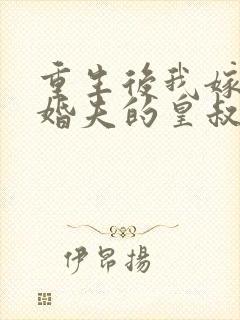 重生後我嫁
婚夫的皇叔
伊昂揚